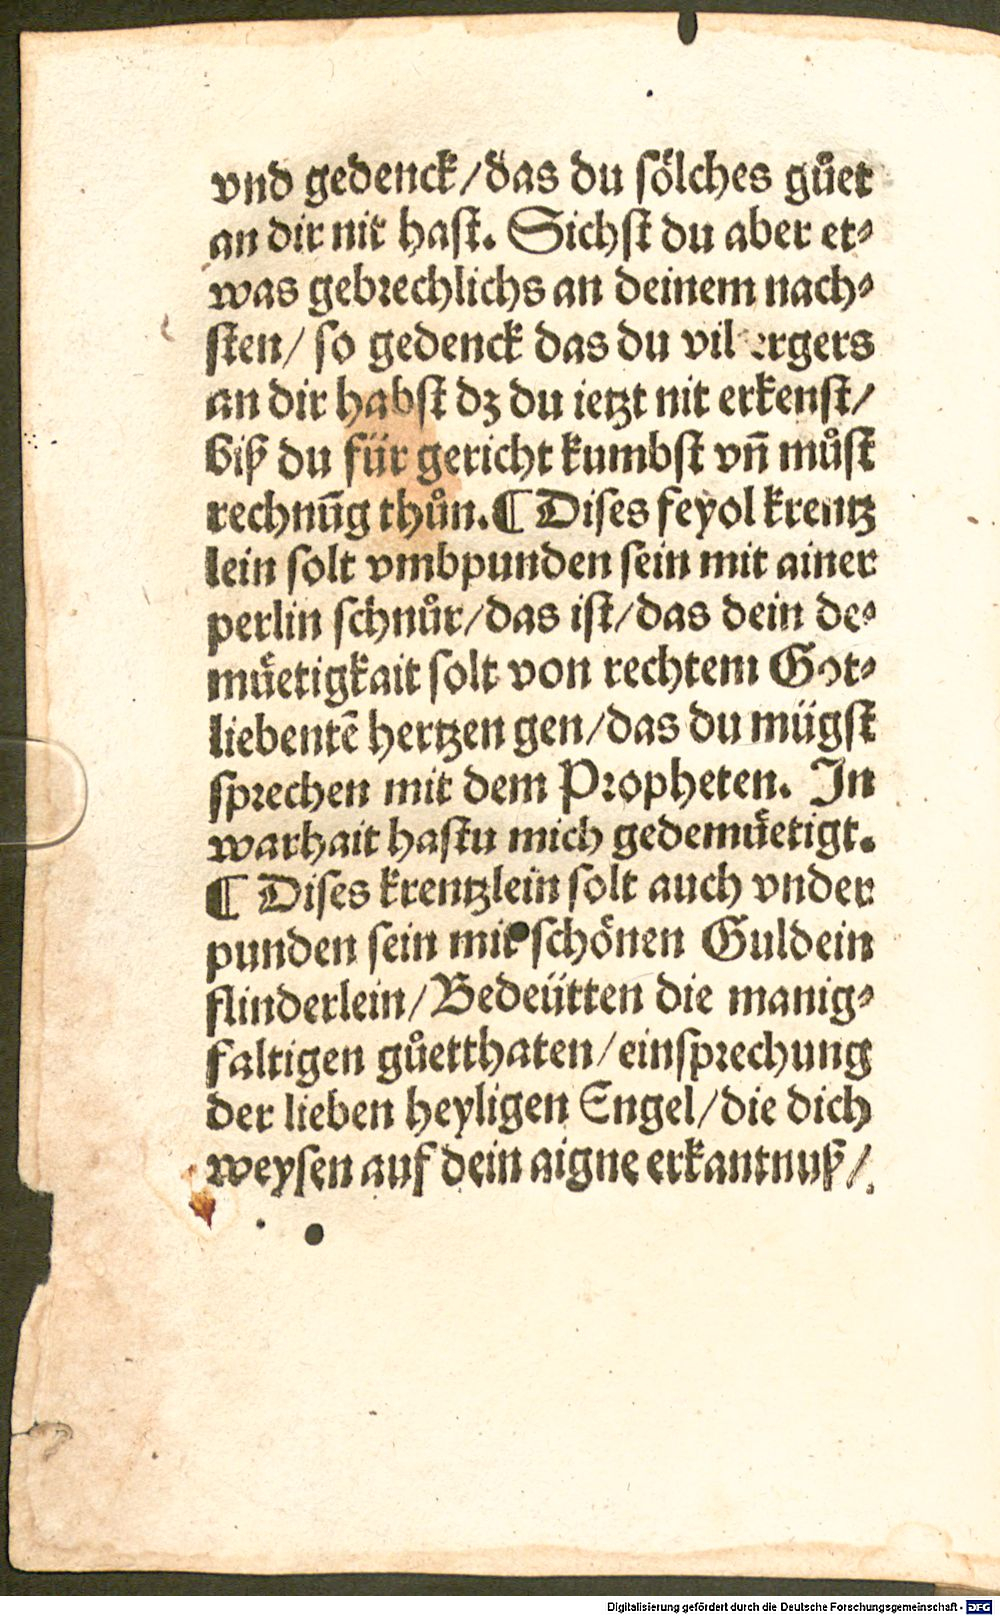 vnd gedenck/das du sölches gůet
an dir nit hast. Sichst du aber et⸗
was gebrechlichs an deinem nach⸗
sten/ so gedenck das du vil ergers
an dir habst dz du ietzt nit erkenst/
biß du für gericht kumbst vn̄ můst
rechnūg thůn.¶ Dises feyol krentz
lein solt vmbpunden sein mit ainer
perlin schnůr/das ist/das dein de⸗
muͤetigkait solt von rechtem Got⸗
liebentē hertzen gen/das du mügst
sprechen mit dem Propheten. In
warhait hastu mich gedemuͤetigt.
¶ Dises krentzlein solt auch vnder
punden sein mit schönen Guldein
flinderlein/Bedeütten die manig⸗
faltigen gůetthaten/einsprechung
der lieben heyligen Engel/die dich
weysen auf dein aigne erkantnuß/
Digitalisierung gefördert durch die Deutsche Forschungsgemeinschaft - DFG